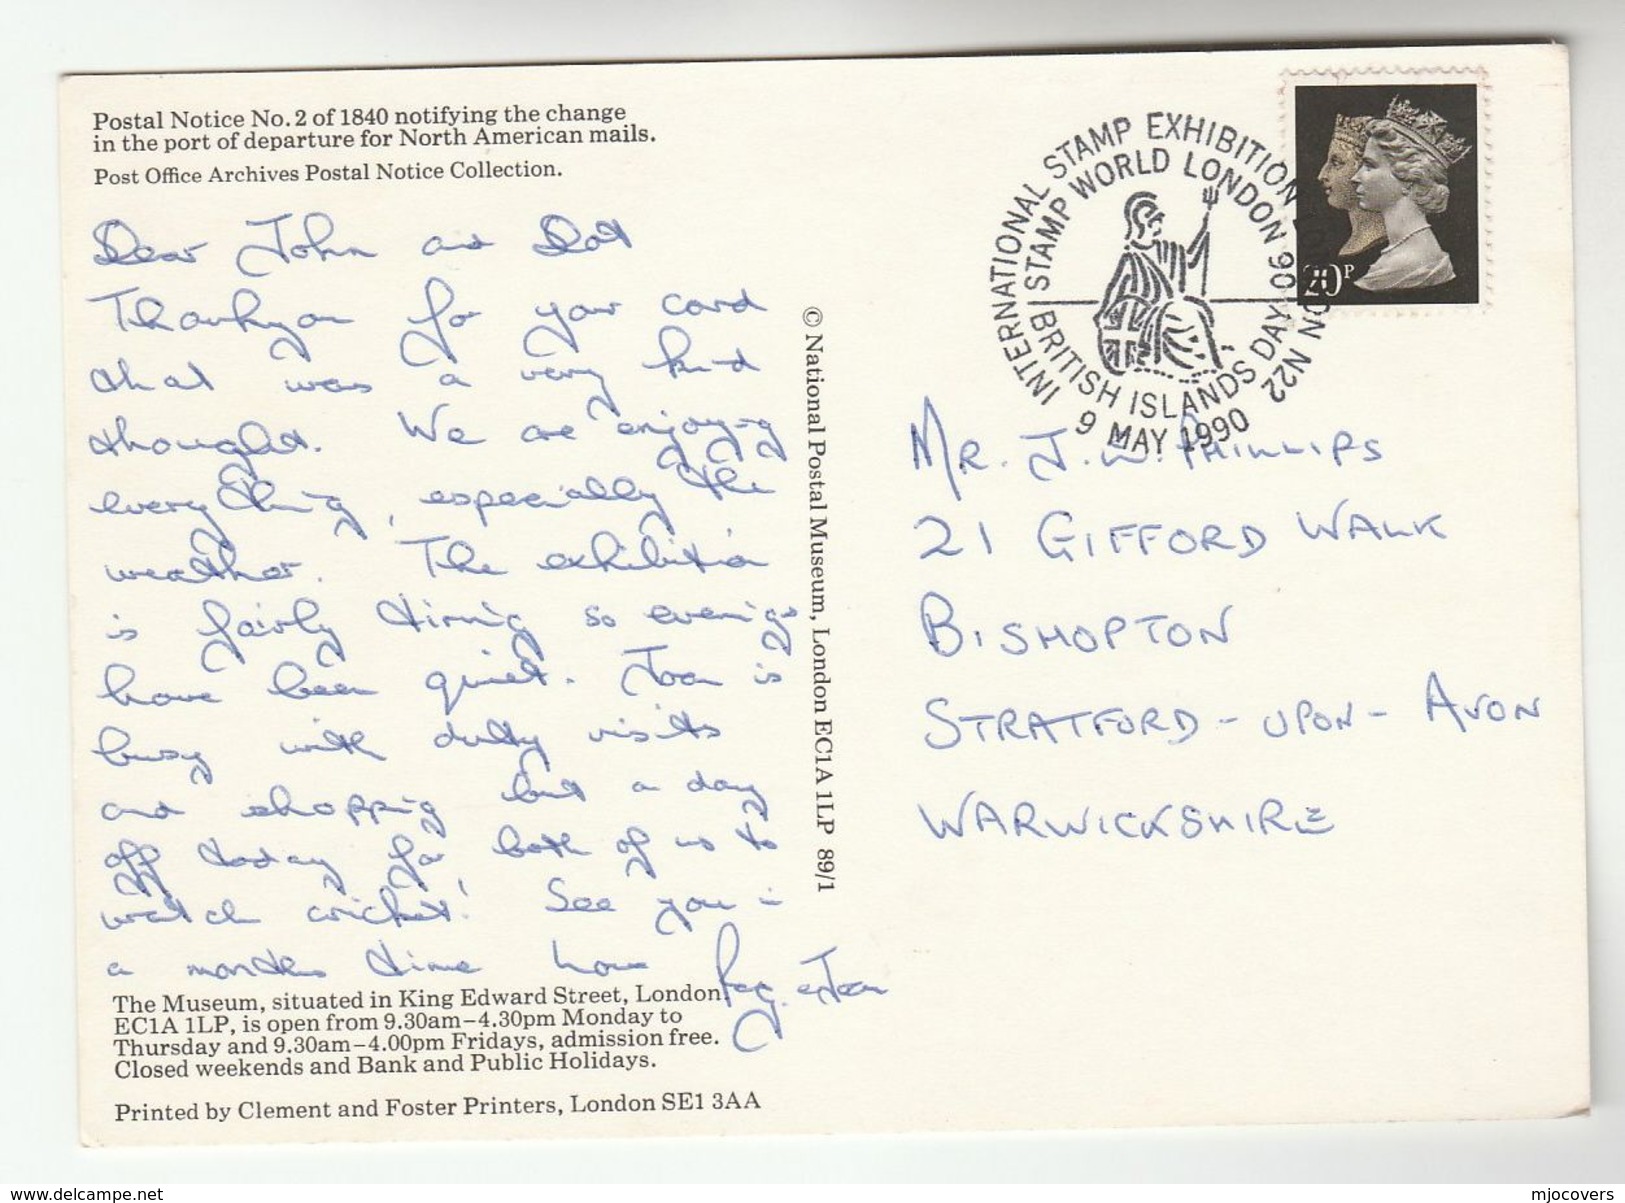 Postal Notice No. 2 of 1840 notifying the change
in the port of departure for North American mails.
Post Office Archives Postal Notice Collection.
Dear John and Dot
Thankyou for your card
that was a very kind
thought. We are enjoying
everything, especially the
weather. The exhibition
is fairly tiring so evenings
have been quiet. Joan is
busy with duty visits
and shopping but a day
off today for both of us to
watch cricket! See you in
a months time love
Reg. & Joan
The Museum, situated in King Edward Street, London,
EC1A 1LP, is open from 9.30am–4.30pm Monday to
Thursday and 9.30am–4.00pm Fridays, admission free.
Closed weekends and Bank and Public Holidays.
Printed by Clement and Foster Printers, London SE1 3AA
© National Postal Museum, London EC1A 1LP 89/1
INTERNATIONAL STAMP EXHIBITION LONDON N22
STAMP WORLD LONDON 90
BRITISH ISLANDS DAY
9 MAY 1990
20P
MR. J. W. PHILLIPS
21 GIFFORD WALK
BISHOPTON
STRATFORD-UPON-AVON
WARWICKSHIRE
www.delcampe.net
mjocovers